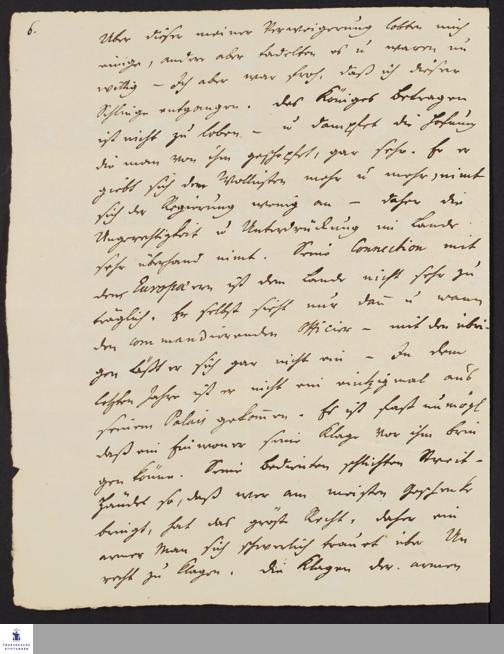 6.
Über dieser meiner Verweigerung lobten mich
einige, andere aber tadelten es u waren un
willig – Ich aber war froh, daß ich dieser
Schlinge entgangen. Des Königes Betragen
ist nicht zu loben – u dampfet die Hofnung
die man von ihm geschöpfet, gar sehr. Er er
giebt sich den Wollüsten mehr u mehr, nimt
sich der Regierung wenig an – daher die
Ungerechtigkeit u Unterdrückung im Lande
sehr überhand nimt. Seine Connection mit
den Europäern ist dem Lande nicht sehr zu
träglich. Er selbst sieht nur dan u wann
den commandierenden Officier – mit den übri-
gen läßt er sich gar nicht ein – In dem
letzten Jahre ist er nicht ein einzigmal aus
seinem Palais gekommen. Es ist fast unmögl
daß ein Einwoner seine Klage vor ihm brin
gen könne. Seine Bedienten schlichten Streit-
händel so, daß wer am meisten Geschenke
bringt, hat das gröste Recht, daher ein
armer Man sich schwerlich trauet über Un
recht zu klagen. Die Klagen der armen
FRANCKESCHE
STIFTUNGEN